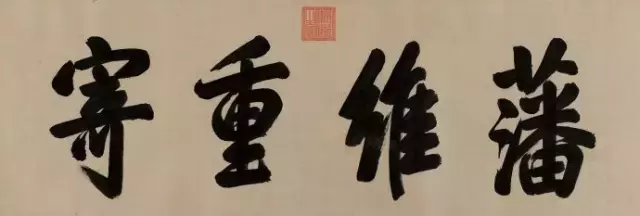 藩維重寄